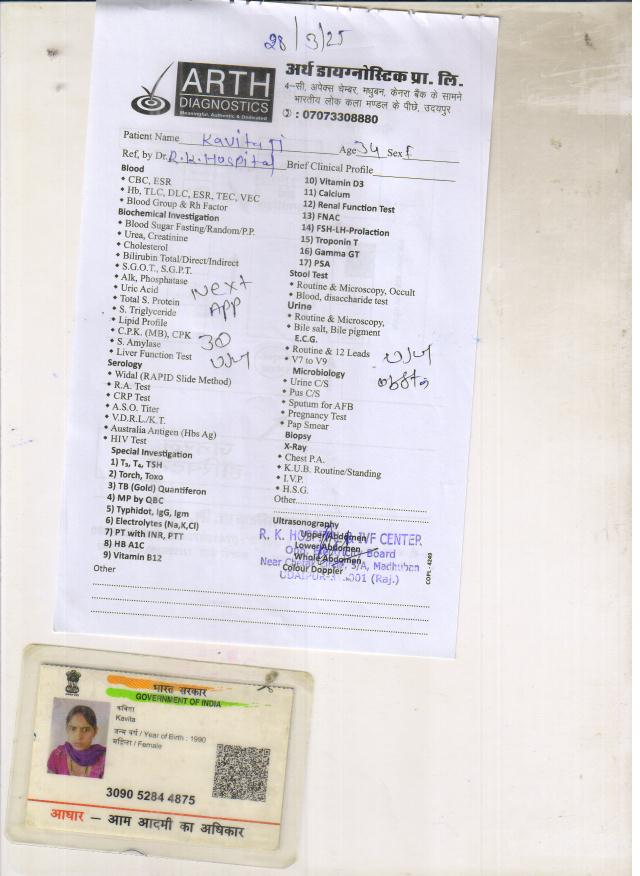 28/3/25
ARTH
DIAGNOSTICS
Meaningful, Authentic & Dedicated
अर्थ डायग्नोस्टिक प्रा. लि.
4-सी, अपेक्स चेम्बर, मधुबन, केनरा बैंक के सामने
भारतीय लोक कला मण्डल के पीछे, उदयपुर
✆ : 07073308880
Patient Name Kavita ji Age 34 Sex F
Ref, by Dr. R.K. Hospital Brief Clinical Profile
Blood
• CBC, ESR
• Hb, TLC, DLC, ESR, TEC, VEC
• Blood Group & Rh Factor
Biochemical Investigation
• Blood Sugar Fasting/Random/P.P.
• Urea, Creatinine
• Cholesterol
• Bilirubin Total/Direct/Indirect
• S.G.O.T., S.G.P.T.
• Alk, Phosphatase
• Uric Acid
• Total S. Protein
• S. Triglyceride
• Lipid Profile
• C.P.K. (MB), CPK
• S. Amylase
• Liver Function Test
Next
App
30
Serology
• Widal (RAPID Slide Method)
• R.A. Test
• CRP Test
• A.S.O. Titer
• V.D.R.L./K.T.
• Australia Antigen (Hbs Ag)
• HIV Test
Special Investigation
1) T₃, T₄, TSH
2) Torch, Toxo
3) TB (Gold) Quantiferon
4) MP by QBC
5) Typhidot, IgG, Igm
6) Electrolytes (Na,K,Cl)
7) PT with INR, PTT
8) HB A1C
9) Vitamin B12
Other
10) Vitamin D3
11) Calcium
12) Renal Function Test
13) FNAC
14) FSH-LH-Prolaction
15) Troponin T
16) Gamma GT
17) PSA
Stool Test
• Routine & Microscopy, Occult
• Blood, disaccharide test
Urine
• Routine & Microscopy,
• Bile salt, Bile pigment
E.C.G.
• Routine & 12 Leads
• V7 to V9
Microbiology
• Urine C/S
• Pus C/S
• Sputum for AFB
• Pregnancy Test
• Pap Smear
Biopsy
X-Ray
• Chest P.A.
• K.U.B. Routine/Standing
• I.V.P.
• H.S.G.
Other
Ultrasonography
Upper Abdomen
Lower Abdomen
Whole Abdomen
Colour Doppler
R. K. HOSPITAL & IVF CENTER
Board
5/A, Madhuban
UDAIPUR-313001 (Raj.)
COPL - 4249
भारत सरकार
GOVERNMENT OF INDIA
कविता
Kavita
जन्म वर्ष / Year of Birth : 1990
महिला / Female
3090 5284 4875
आधार – आम आदमी का अधिकार